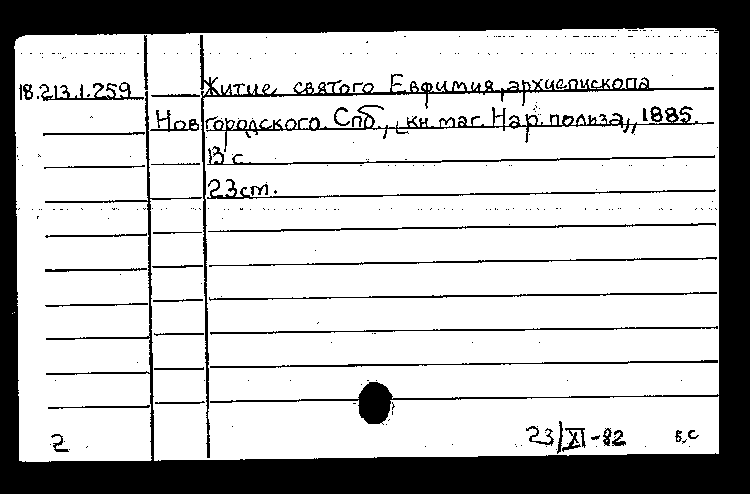 18.213.1.259 Житие святого Евфимия, архиепископа
Новгородского. Спб., кн. маг. Нар. польза,, 1885.
13 с
23 cm.
2 23/XI-82 в,с